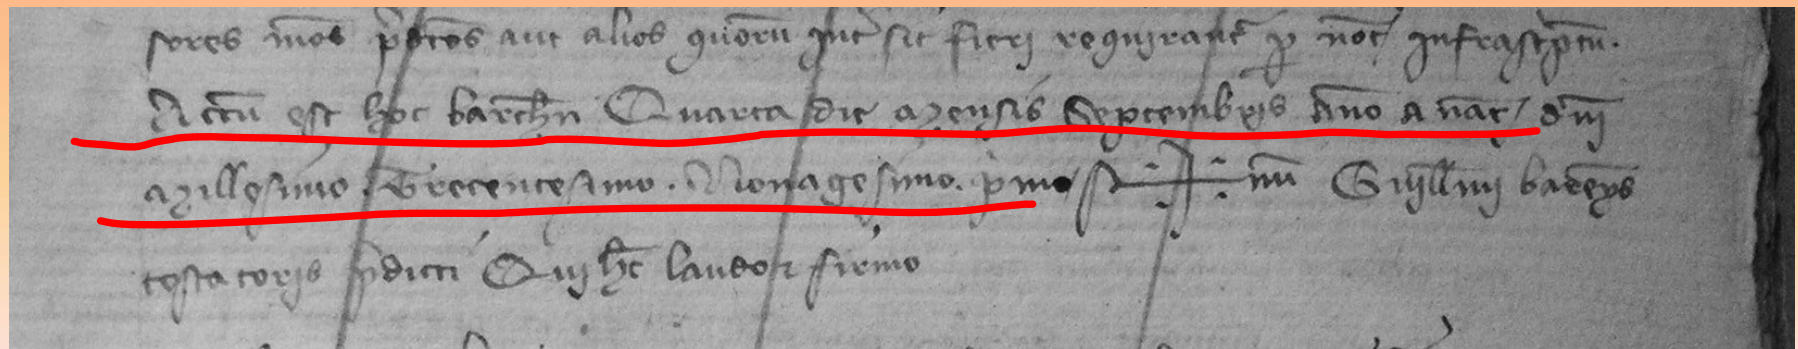 sores meos p̃dc̃os aut alios quor̃u int̃sit fieri requirant̃ p not̃ infrascpt̃u.
Actũ est hoc barch̃n Quarta die mensis Septembris Anno a nat̃ dñi
Millesimo. Trecentesimo. Nonagesimo. p̃mo S✝nũ Guill̃mi bareys
testatoris p̃dicti Qui h̃ laudo et firmo